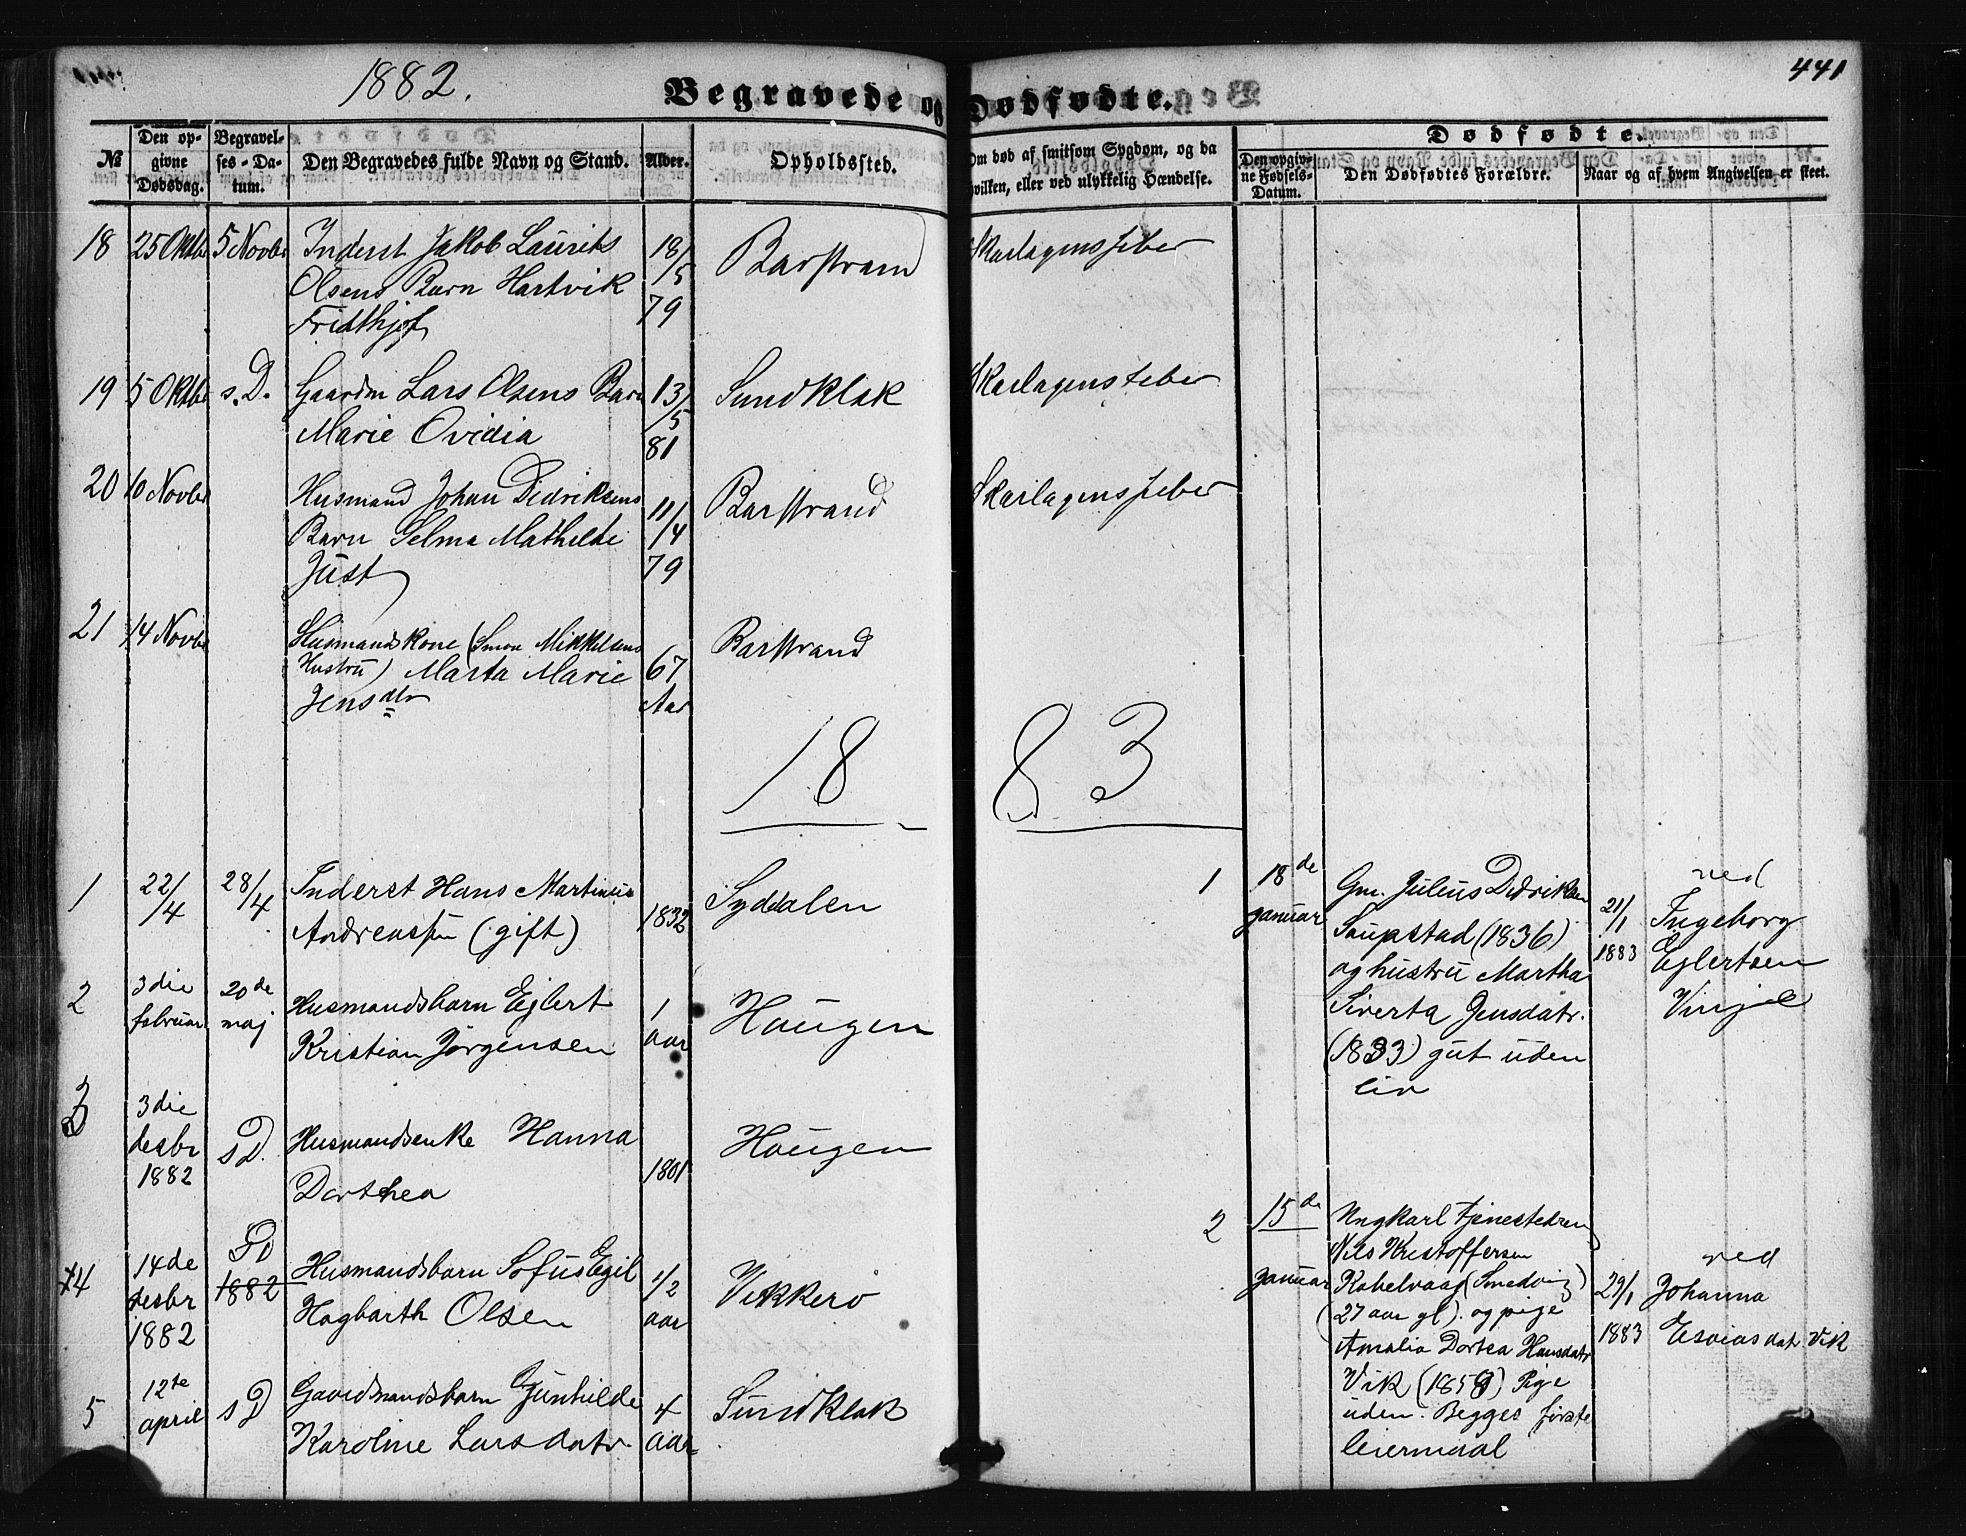 1882.
Begravede og Dødfødte.
441
№
Den opgivne Dødsdag.
Begravelses-Datum.
Den Begravedes fulde Navn og Stand.
Alder.
Opholdssted.
Om død af smitsom Sygdom, og da hvilken, eller ved ulykkelig Hændelse.
Dødfødte.
Den opgivne Fødsels-Datum.
Den Dødfødtes Forældre.
Naar og af hvem Angivelsen er skeet.
18 25 Oktbr 5 Novbr Inderst Jakob Laurits 18/5 79 Barstrand Skarlagensfeber
Olsens Barn Hartvik
Fridthjof
19 5 Oktbr s.D. Gaardm Lars Olsens Barn 13/5 81 Sundklak Skarlagensfeber
Marie Ovidia
20 10 Novbr Husmand Johan Didriksens 11/4 79 Barstrand Skarlagensfeber
Barn Selma Mathilde
Just
21 14 Novbr Husmandskone (Simon Mikkelsens 67 Aar Barstrand
Hustru) Marta Marie
Jensdtr
1883
1 22/4 28/4 Inderst Hans Martinus 1832 Syddalen
Andreassen (gift)
2 3die februar 20de maj Husmandsbarn Ejlert 1 aar Haugen
Kristian Jørgensen
3 3die desbr 1882 s D. Husmandsenke Hanna 1801 Haugen
Dorthea
4 14de desbr 1882 1882 Husmandsbarn Sofus Egil 1/2 aar Vikkerø
Hagbarth Olsen
5 12te april s D Gaardmandsbarn Gunhilde 4 aar Sundklak
Karoline Larsdatr
1 18de januar Gm. Julius Didriksen 21/1 1883 ved
Saupstad (1836) Ingeborg
og hustru Martha Ejlertsen
Siverta Jensdatr. Vinje
(1833) gut uden
liv
2 15de januar Ungkarl tjenestedreng
Nils Kristoffersen ved
Kabelvaag (Smedvig) 29/1 1883 Johanna
(27 aar gl). og pige
Amalia Dortea Hansdatr Esaiasdat Vik
Vik (1859) Pige
uden. Begges første
leiermaal